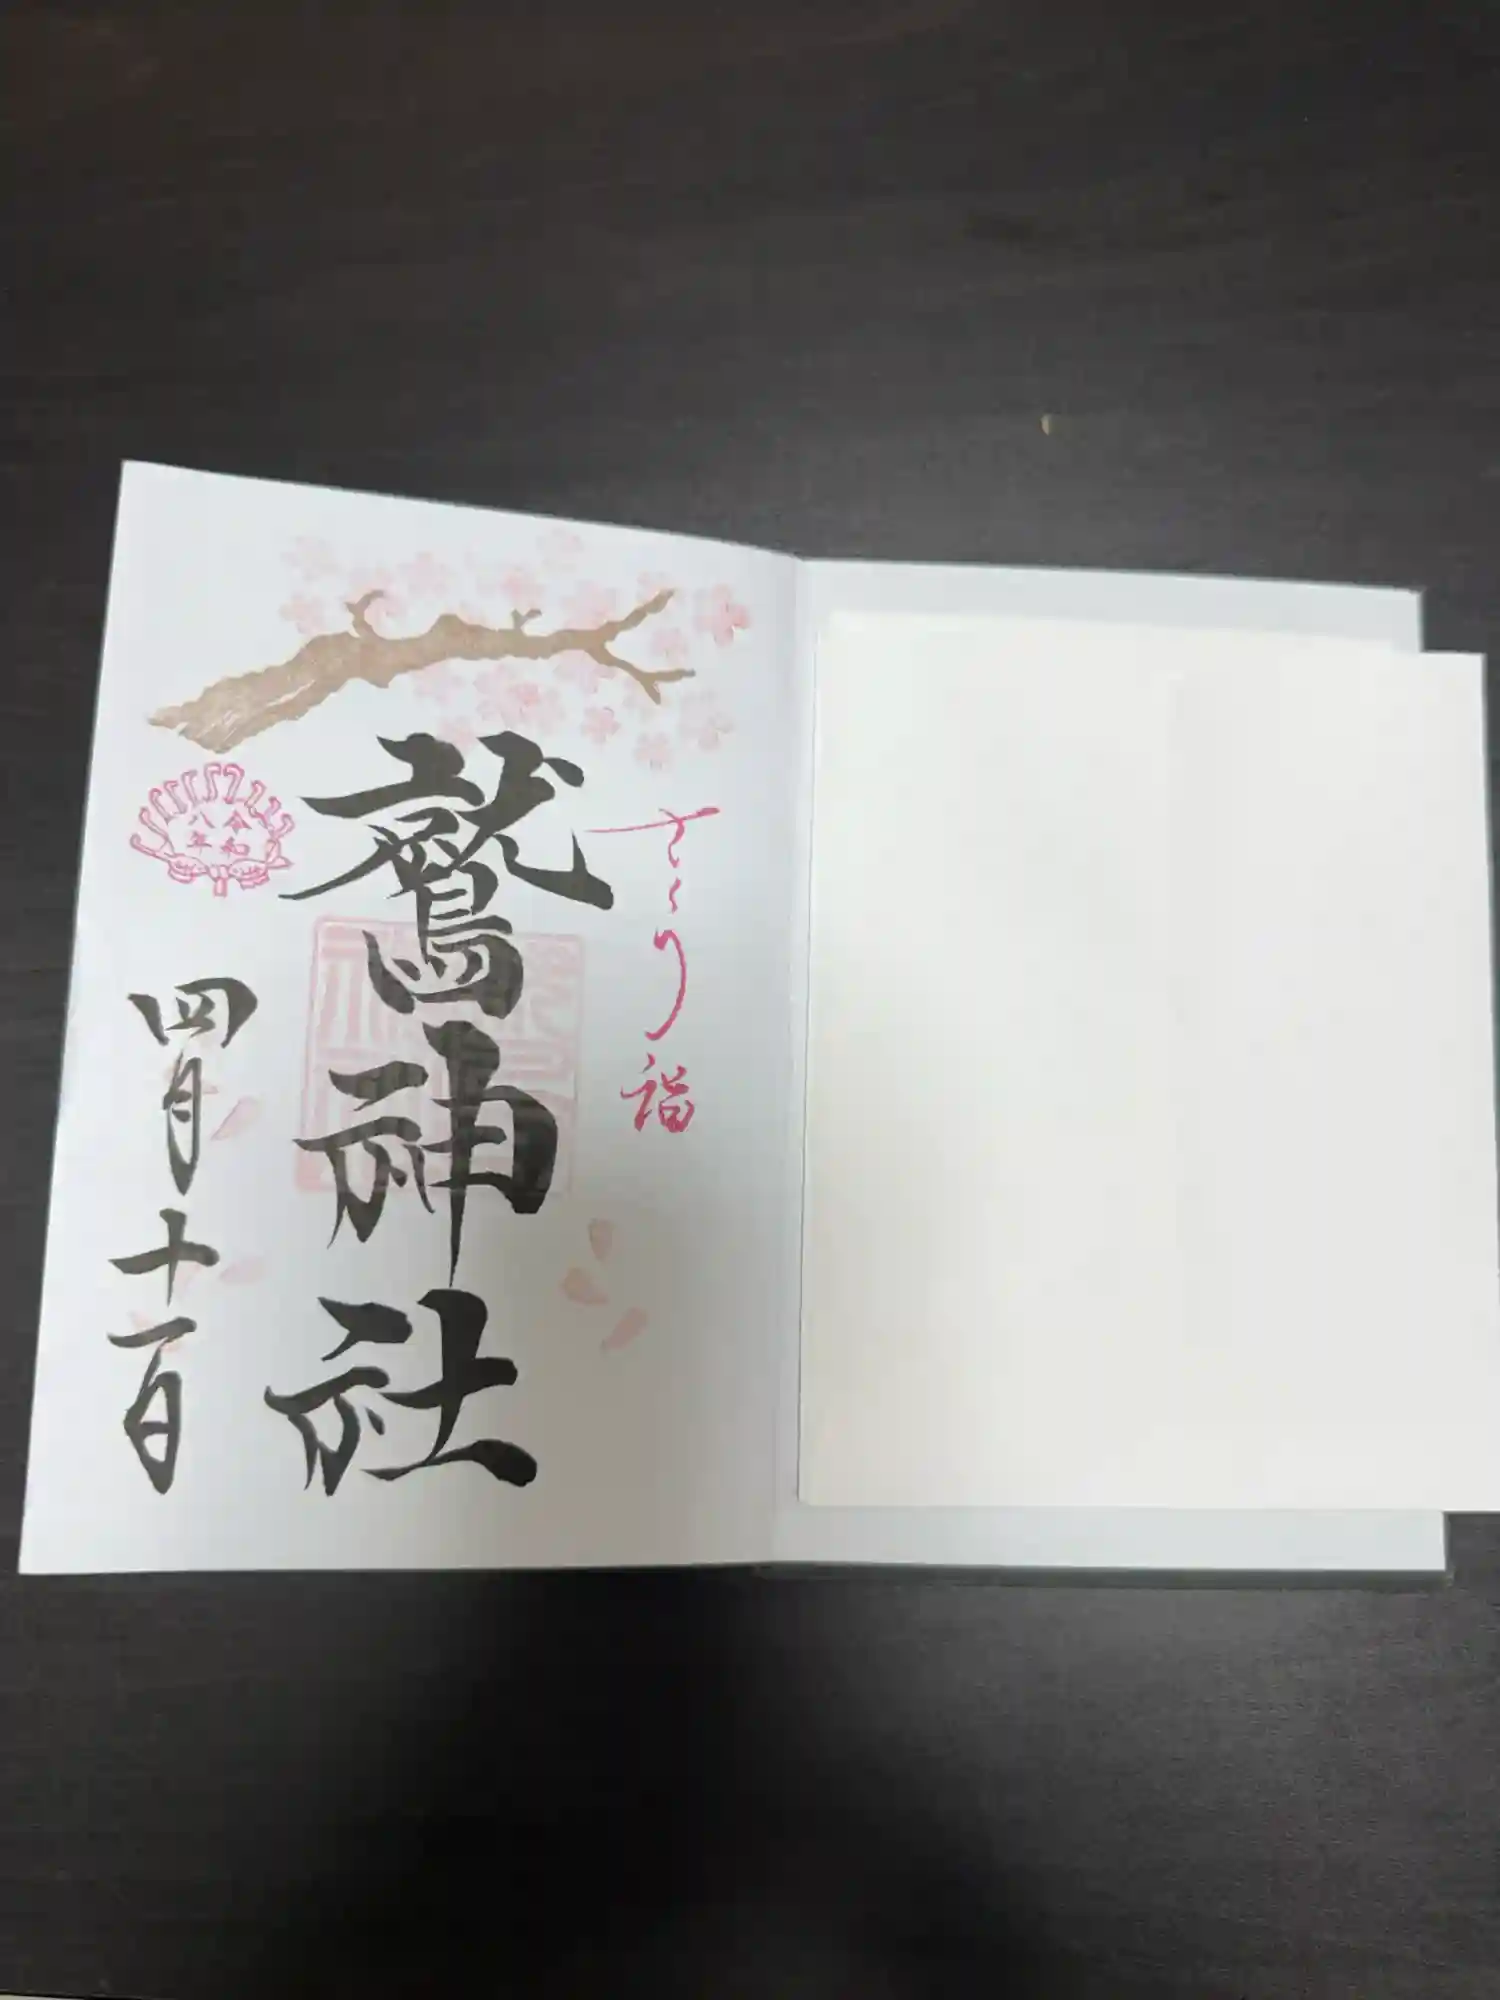 さくら詣
鷲神社
令和
八年
四月十一日